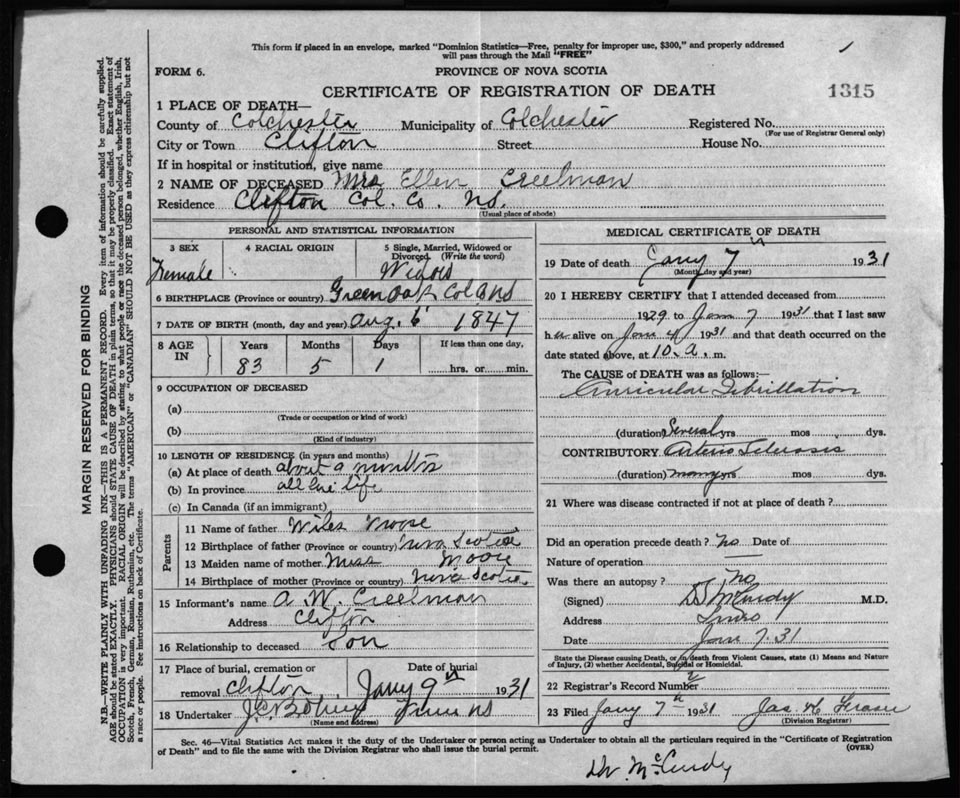 This form if placed in an envelope, marked "Dominion Statistics—Free, penalty for improper use, $300," and properly addressed
will pass through the Mail "FREE"
FORM 6.
PROVINCE OF NOVA SCOTIA
CERTIFICATE OF REGISTRATION OF DEATH
1315
1 PLACE OF DEATH—
County of Colchester Municipality of Colchester Registered No.
(For use of Registrar General only)
City or Town Clifton Street House No.
If in hospital or institution, give name
2 NAME OF DECEASED Mrs Ellen Creelman
Residence Clifton Col. Co. NS.
(Usual place of abode)
PERSONAL AND STATISTICAL INFORMATION
3 SEX 4 RACIAL ORIGIN 5 Single, Married, Widowed or
Divorced. (Write the word)
Female Widow
6 BIRTHPLACE (Province or country) Green Oak Col Co NS
7 DATE OF BIRTH (month, day and year) Aug. 6 1847
8 AGE IN Years Months Days If less than one day,
83 5 1 hrs. or min.
9 OCCUPATION OF DECEASED
(a)
(Trade or occupation or kind of work)
(b)
(Kind of industry)
10 LENGTH OF RESIDENCE (in years and months)
(a) At place of death about 9 months
(b) In province all her life
(c) In Canada (if an immigrant)
Parents
11 Name of father Moore
12 Birthplace of father (Province or country) Nova Scotia
13 Maiden name of mother Miss Moore
14 Birthplace of mother (Province or country) Nova Scotia
15 Informant's name A. W. Creelman
Address Clifton
16 Relationship to deceased Son
17 Place of burial, cremation or Date of burial
removal Clifton, Jany 9th 1931
18 Undertaker NS
(Name and address)
MEDICAL CERTIFICATE OF DEATH
19 Date of death Jany 7th 1931
(Month, day and year)
20 I HEREBY CERTIFY that I attended deceased from
1929 to Jan 7 1931 that I last saw
h alive on Jan 4 1931 and that death occurred on the
date stated above, at 10 a. m.
The CAUSE of DEATH was as follows:—
Auricular Fibrillation
(duration) Several yrs mos dys.
CONTRIBUTORY Arterio Sclerosis
(duration) many yrs mos dys.
21 Where was disease contracted if not at place of death?
Did an operation precede death? no Date of
Nature of operation —
Was there an autopsy? no
(Signed) McCurdy M.D.
Address Truro
Date Jan 7 31
State the Disease causing Death, or in death from Violent Causes, state (1) Means and Nature
of Injury, (2) whether Accidental, Suicidal or Homicidal.
22 Registrar's Record Number 2
23 Filed Jany 7th 1931 Jas. Fraser
(Division Registrar)
Sec. 46—Vital Statistics Act makes it the duty of the Undertaker or person acting as Undertaker to obtain all the particulars required in the "Certificate of Registration
of Death" and to file the same with the Division Registrar who shall issue the burial permit.
(OVER)
Dr. McCurdy
MARGIN RESERVED FOR BINDING
N.B.—WRITE PLAINLY WITH UNFADING INK—THIS IS A PERMANENT RECORD. Every item of information should be carefully supplied.
AGE should be stated EXACTLY. PHYSICIANS should STATE CAUSE OF DEATH in plain terms, so that it may be properly classified. Exact statement of
OCCUPATION is very important. RACIAL ORIGIN will be described by stating to what people or race the deceased person belonged, whether English, Irish,
Scotch, French, German, Russian, Ruthenian, etc. The terms "AMERICAN" or "CANADIAN" SHOULD NOT BE USED as they express citizenship but not
a race or people. See instructions on back of Certificate.